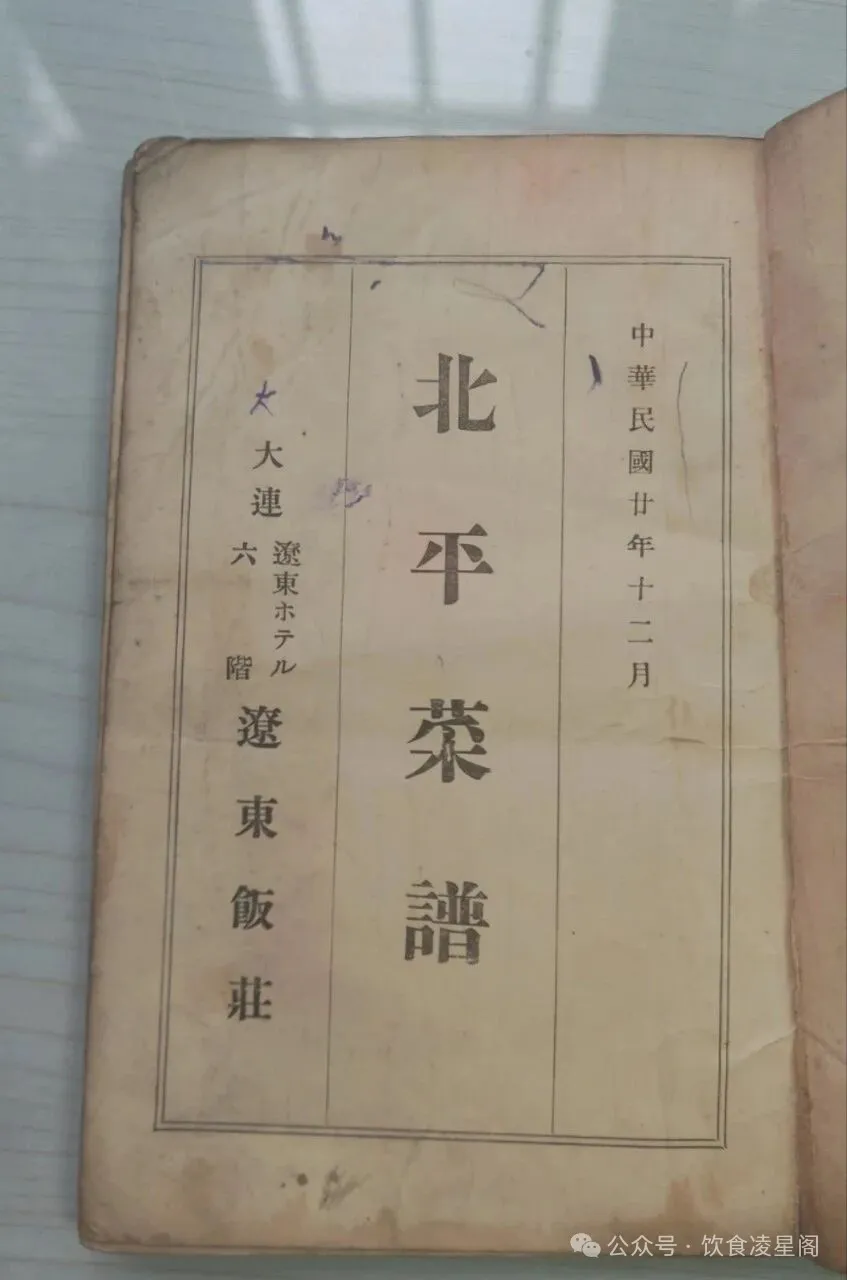 中華民國廿年十二月
北平菜譜
大連
遼東ホテル
六階
遼東飯莊
大
公众号·饮食凌星阁